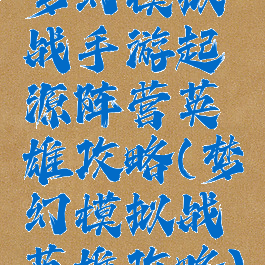 梦幻模拟
战手游起
源阵营英
雄攻略(梦
幻模拟战
英雄攻略)